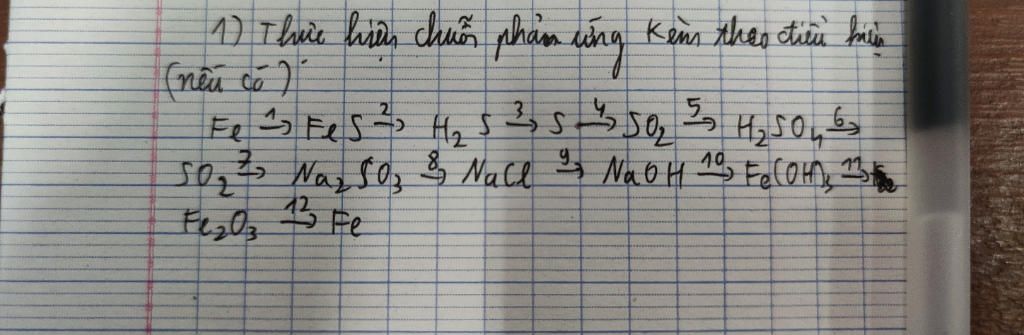 1) Thực hiện chuỗi phản ứng kèm theo điều kiện
(nếu có)
Fe 1→ FeS 2→ H₂S 3→ S 4→ SO₂ 5→ H₂SO₄ 6→
SO₂ 7→ Na₂SO₃ 8→ NaCl 9→ NaOH 10→ Fe(OH)₃ 11→
Fe₂O₃ 12→ Fe